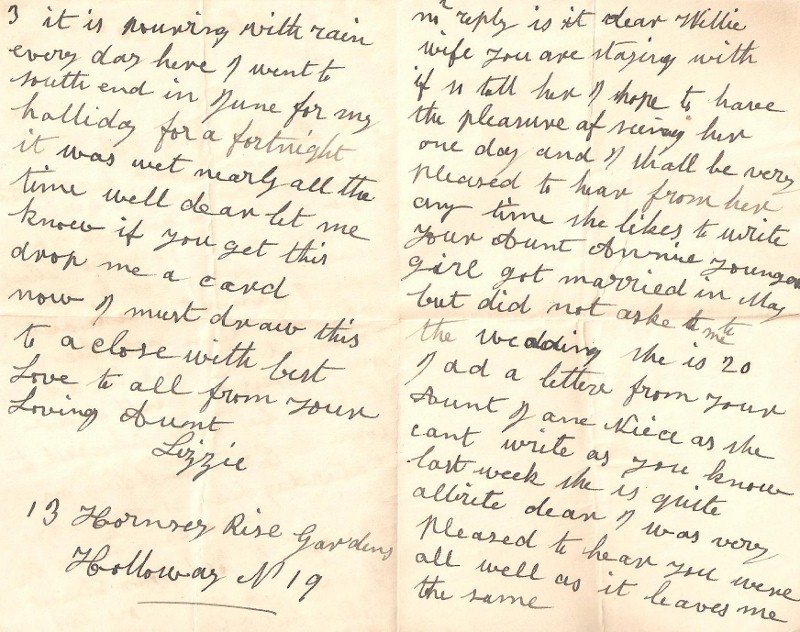 3 it is pouring with rain
every day here I went to
south end in June for my
halliday for a fortnight
it was wet nearly all the
time well dear let me
know if you get this
drop me a card
now I must draw this
to a close with best
Love to all from your
Loving Aunt
Lizzie
13 Hornsey Rise Gardens
Holloway N 19
reply is it dear Willie
wife you are staying with
if so tell her I hope to have
the pleasure of seeing her
one day and I shall be very
pleased to hear from her
any time she likes to write
your Aunt Annie younger
girl got married in May
but did not aske me to
the wedding she is 20
I ad a letter from your
Aunt Jane Niece as she
cant write as you know
last week she is quite
allrite dear I was very
pleased to hear you were
all well as it leaves me
the same